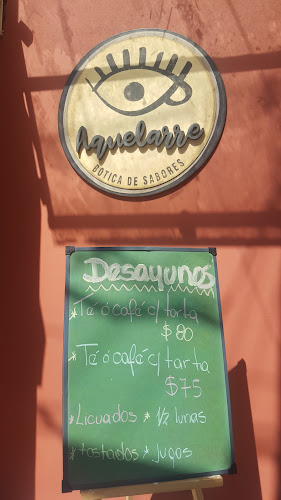 Aquelarre
BOTICA DE SABORES
Desayunos
*Té ó café c/ torta
$80
*Té ó café c/ tarta
$75
*Licuados * 1/2 lunas
*tostados * jugos